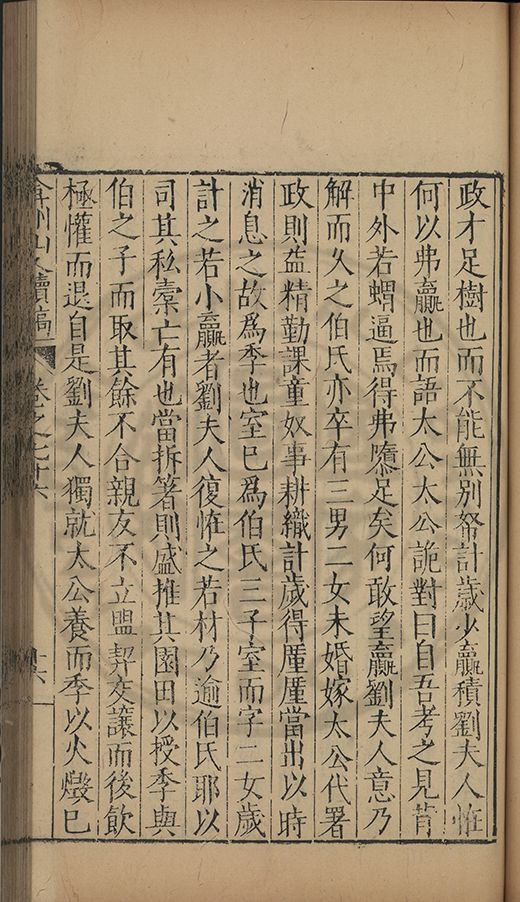 政才足樹也而不能無別帑計歲少贏積劉夫人恠
何以弗贏也而語太公太公詭對曰自吾考之見背
中外若蝟逼焉得弗隳足矣何敢望贏劉夫人意乃
解而久之伯氏亦卒有三男二女未婚嫁太公代署
政則益精勤課童奴事耕織計歲得厪厪當出以時
消息之故爲季也室已爲伯氏三子室而字二女歲
計之若小贏者劉夫人復恠之若材乃逾伯氏耶以
司其私槖亡有也當拆箸則盛推其園田以授季與
伯之子而取其餘不合親友不立盟契交讓而後飲
極懽而退自是劉夫人獨就太公養而季以火燬巳
弇州山人續稿 卷之七十六 十六